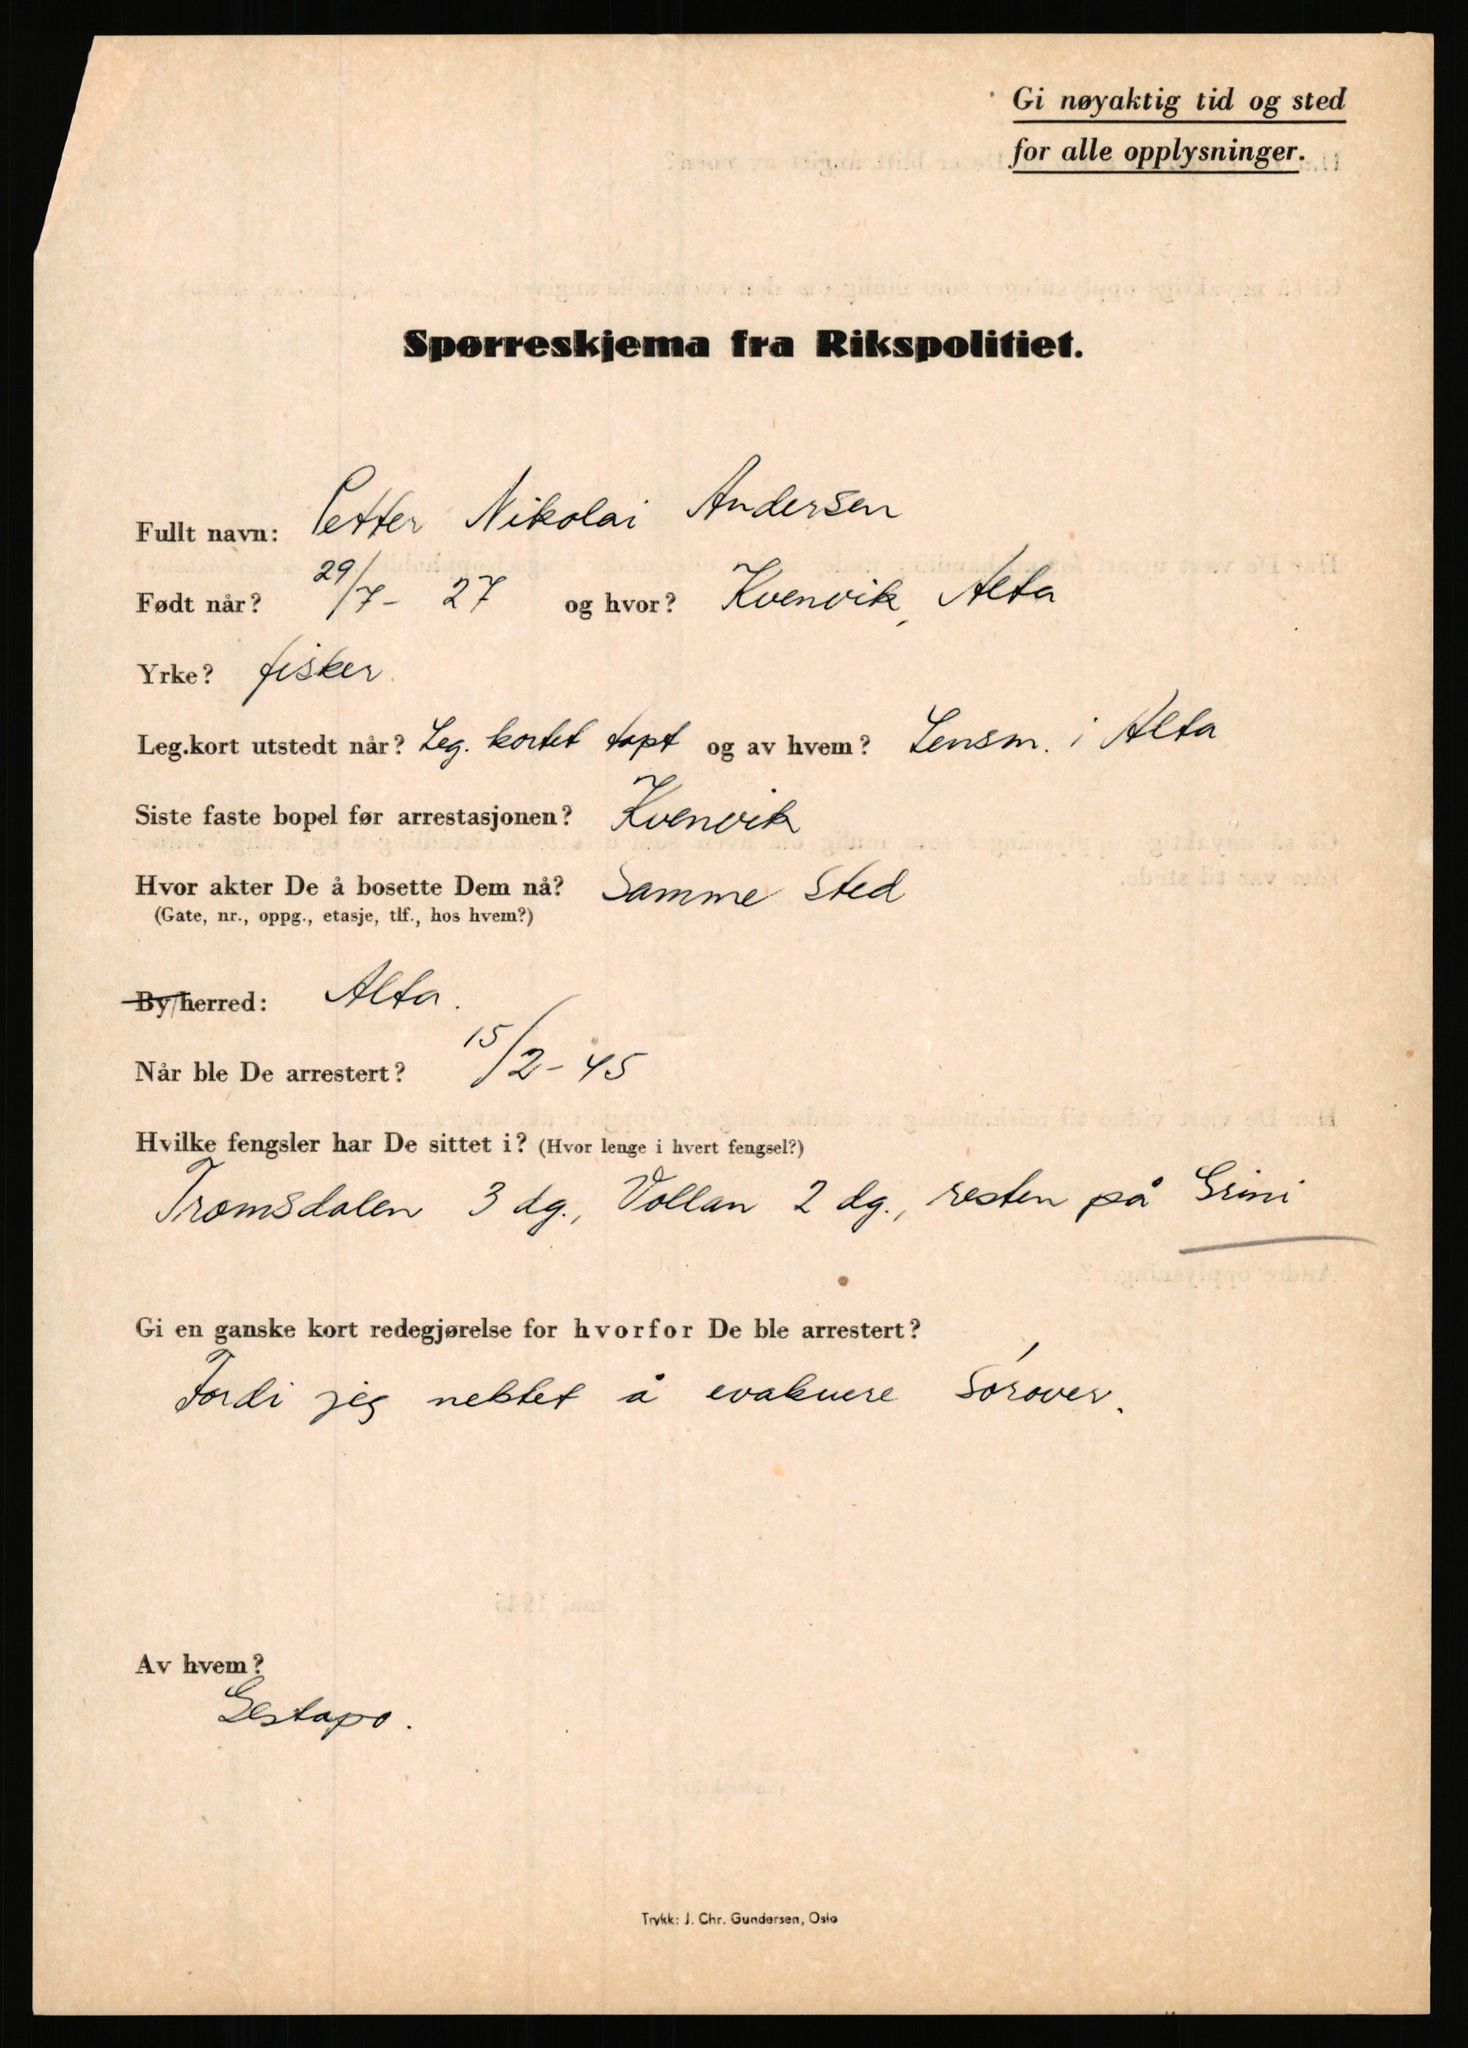 Gi nøyaktig tid og sted
for alle opplysninger.
Spørreskjema fra Rikspolitiet.
Fullt navn: Petter Nikolai Andersen
Født når? 29/7- 27 og hvor? Kvenvik, Alta
Yrke? fisker.
Leg.kort utstedt når? Leg. kortet tapt og av hvem? Lensm. i Alta
Siste faste bopel før arrestasjonen? Kvenvik
Hvor akter De å bosette Dem nå? Samme sted
(Gate, nr., oppg., etasje, tlf., hos hvem?)
By/herred: Alta.
Når ble De arrestert? 15/2-45
Hvilke fengsler har De sittet i? (Hvor lenge i hvert fengsel?)
Tromsdalen 3 dg., Vollan 2 dg., resten på Grini
Gi en ganske kort redegjørelse for hvorfor De ble arrestert?
Fordi jeg nektet å evakuere sørover.
Av hvem?
Gestapo.
Trykk: J. Chr. Gundersen, Oslo